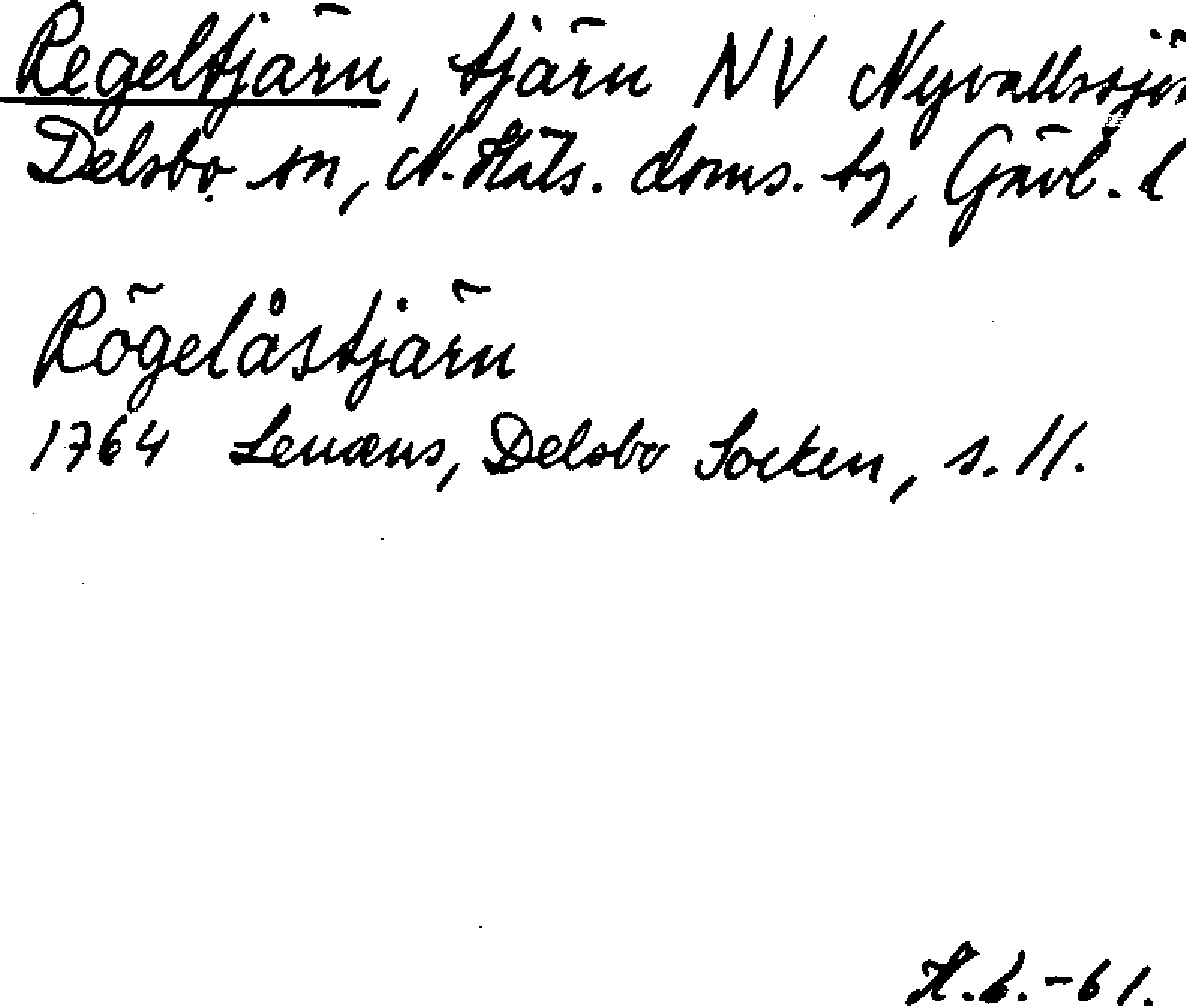 Regeltjärn, tjärn NV Nyvallssjön
Delsbo sn, N. Häls. doms. tg, Gävl. l
Rögelåstjärn
1764 Lenæus, Delsbo Socken, s. 11.
H.L.-61.